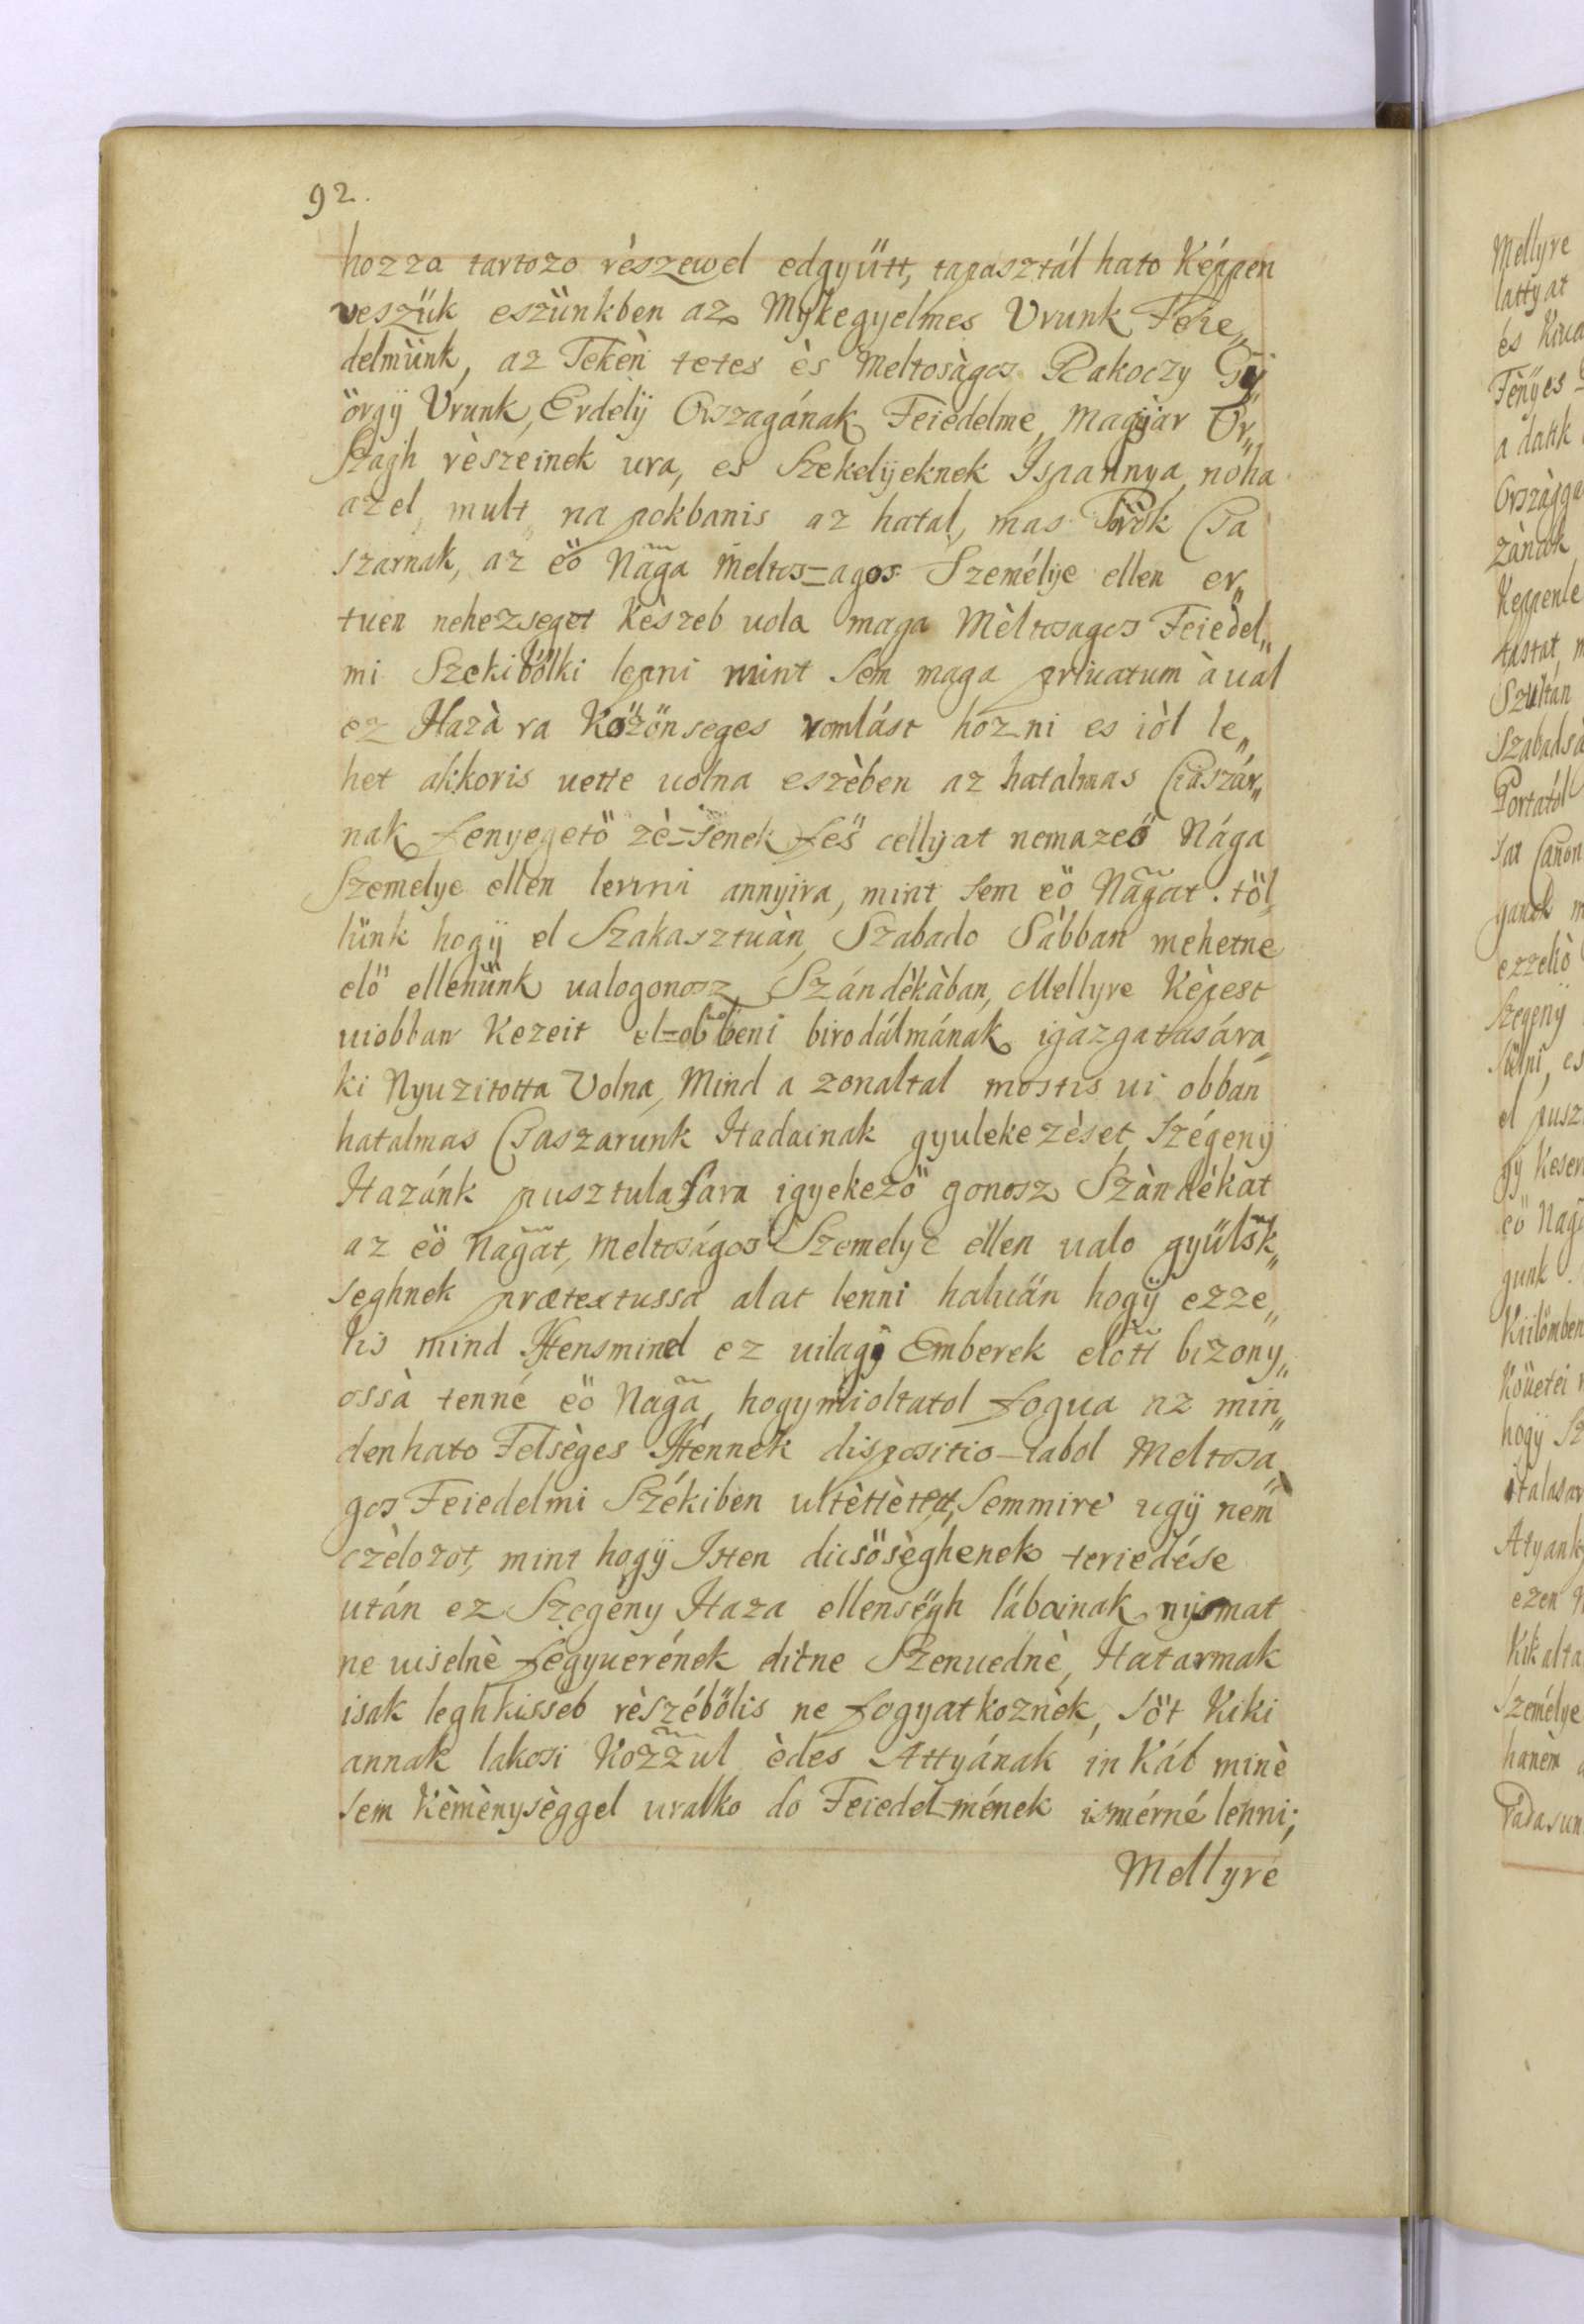 92.
hozza tartozo rèszewel edgyütt, tapasztál hato Képpen
veszük eszünkben az Mÿkegyelmes Vrunk Feie„
delmünk, az Tekèn tetes ès Meltosàgos Rakoczy Gÿ„
örgÿ Vrunk, Erdelÿ Orszagának Feiedelme, Magÿar Or„
Szagh rèszeinek ura, es Szekelÿeknek Ispannya, nöha
az el, mult na pokbanis az hatal, mas Török Csa
szarnak, az eö Nãga Meltos=agos Személÿe ellen er„
tuen nehezseget Kèszeb uola maga Mèltosagos Feiedel„
mi Szekibölki lepni mint sem maga priuatum àual
ez Hazà ra Közönseges romlást hozni es iòl le„
het ákkoris uette uolna eszèben az hatalmas Császár„
nak fenyegetö zè=senek feö cellÿat nem azeö Nága
Szemelye ellen lenni annÿira, mint sem eö Nãgat. töl,
lünk hogÿ el Szakasztuàn, Szabado Sábban mehetne
elö ellenünk ualogonosz Szándèkàban, Mellyre Kèpest
uiobban Kezeit el=obbeni birodálmának igazgatasára
ki Nyuzitotta Volna, Mind a zonaltal mostis ui obban
hatalmas Csaszarunk Hadainak gyulekezèset, Szégenÿ
Hazánk pusztulasára igyekezö gonosz Szàndékat
az eö Nagãt, Meltoságos Szemelye ellen ualo gyülsk„
seghnek prætextussa alat lenni haluän hogÿ ezze„
lis mind Istensmind ez uilagÿ Emberek elött bizony„
ossà tenné eö Nagã, hogymioltatol fogua az min„
denhato Felsèges Istennek dispositio=iabol Meltosa„
gos Feiedelmi Székiben ultèttètet, Semmire ugÿ nem
czèlozot, mint hogÿ Isten dicsösèghenek teriedése
után ez Szegèny Haza ellensègh lábainak nyomat
ne uiselnè fegyuerének ditne Szenuednè, Hatarmak
isak leghkisseb rèszébölis ne fogyatkoznék, söt Kiki
annak lakosi Kozzul èdes Attyának in Káb minè
sem Kèmènysèggel uralko do Feiedel=mének ismérné lenni;
Mellyre